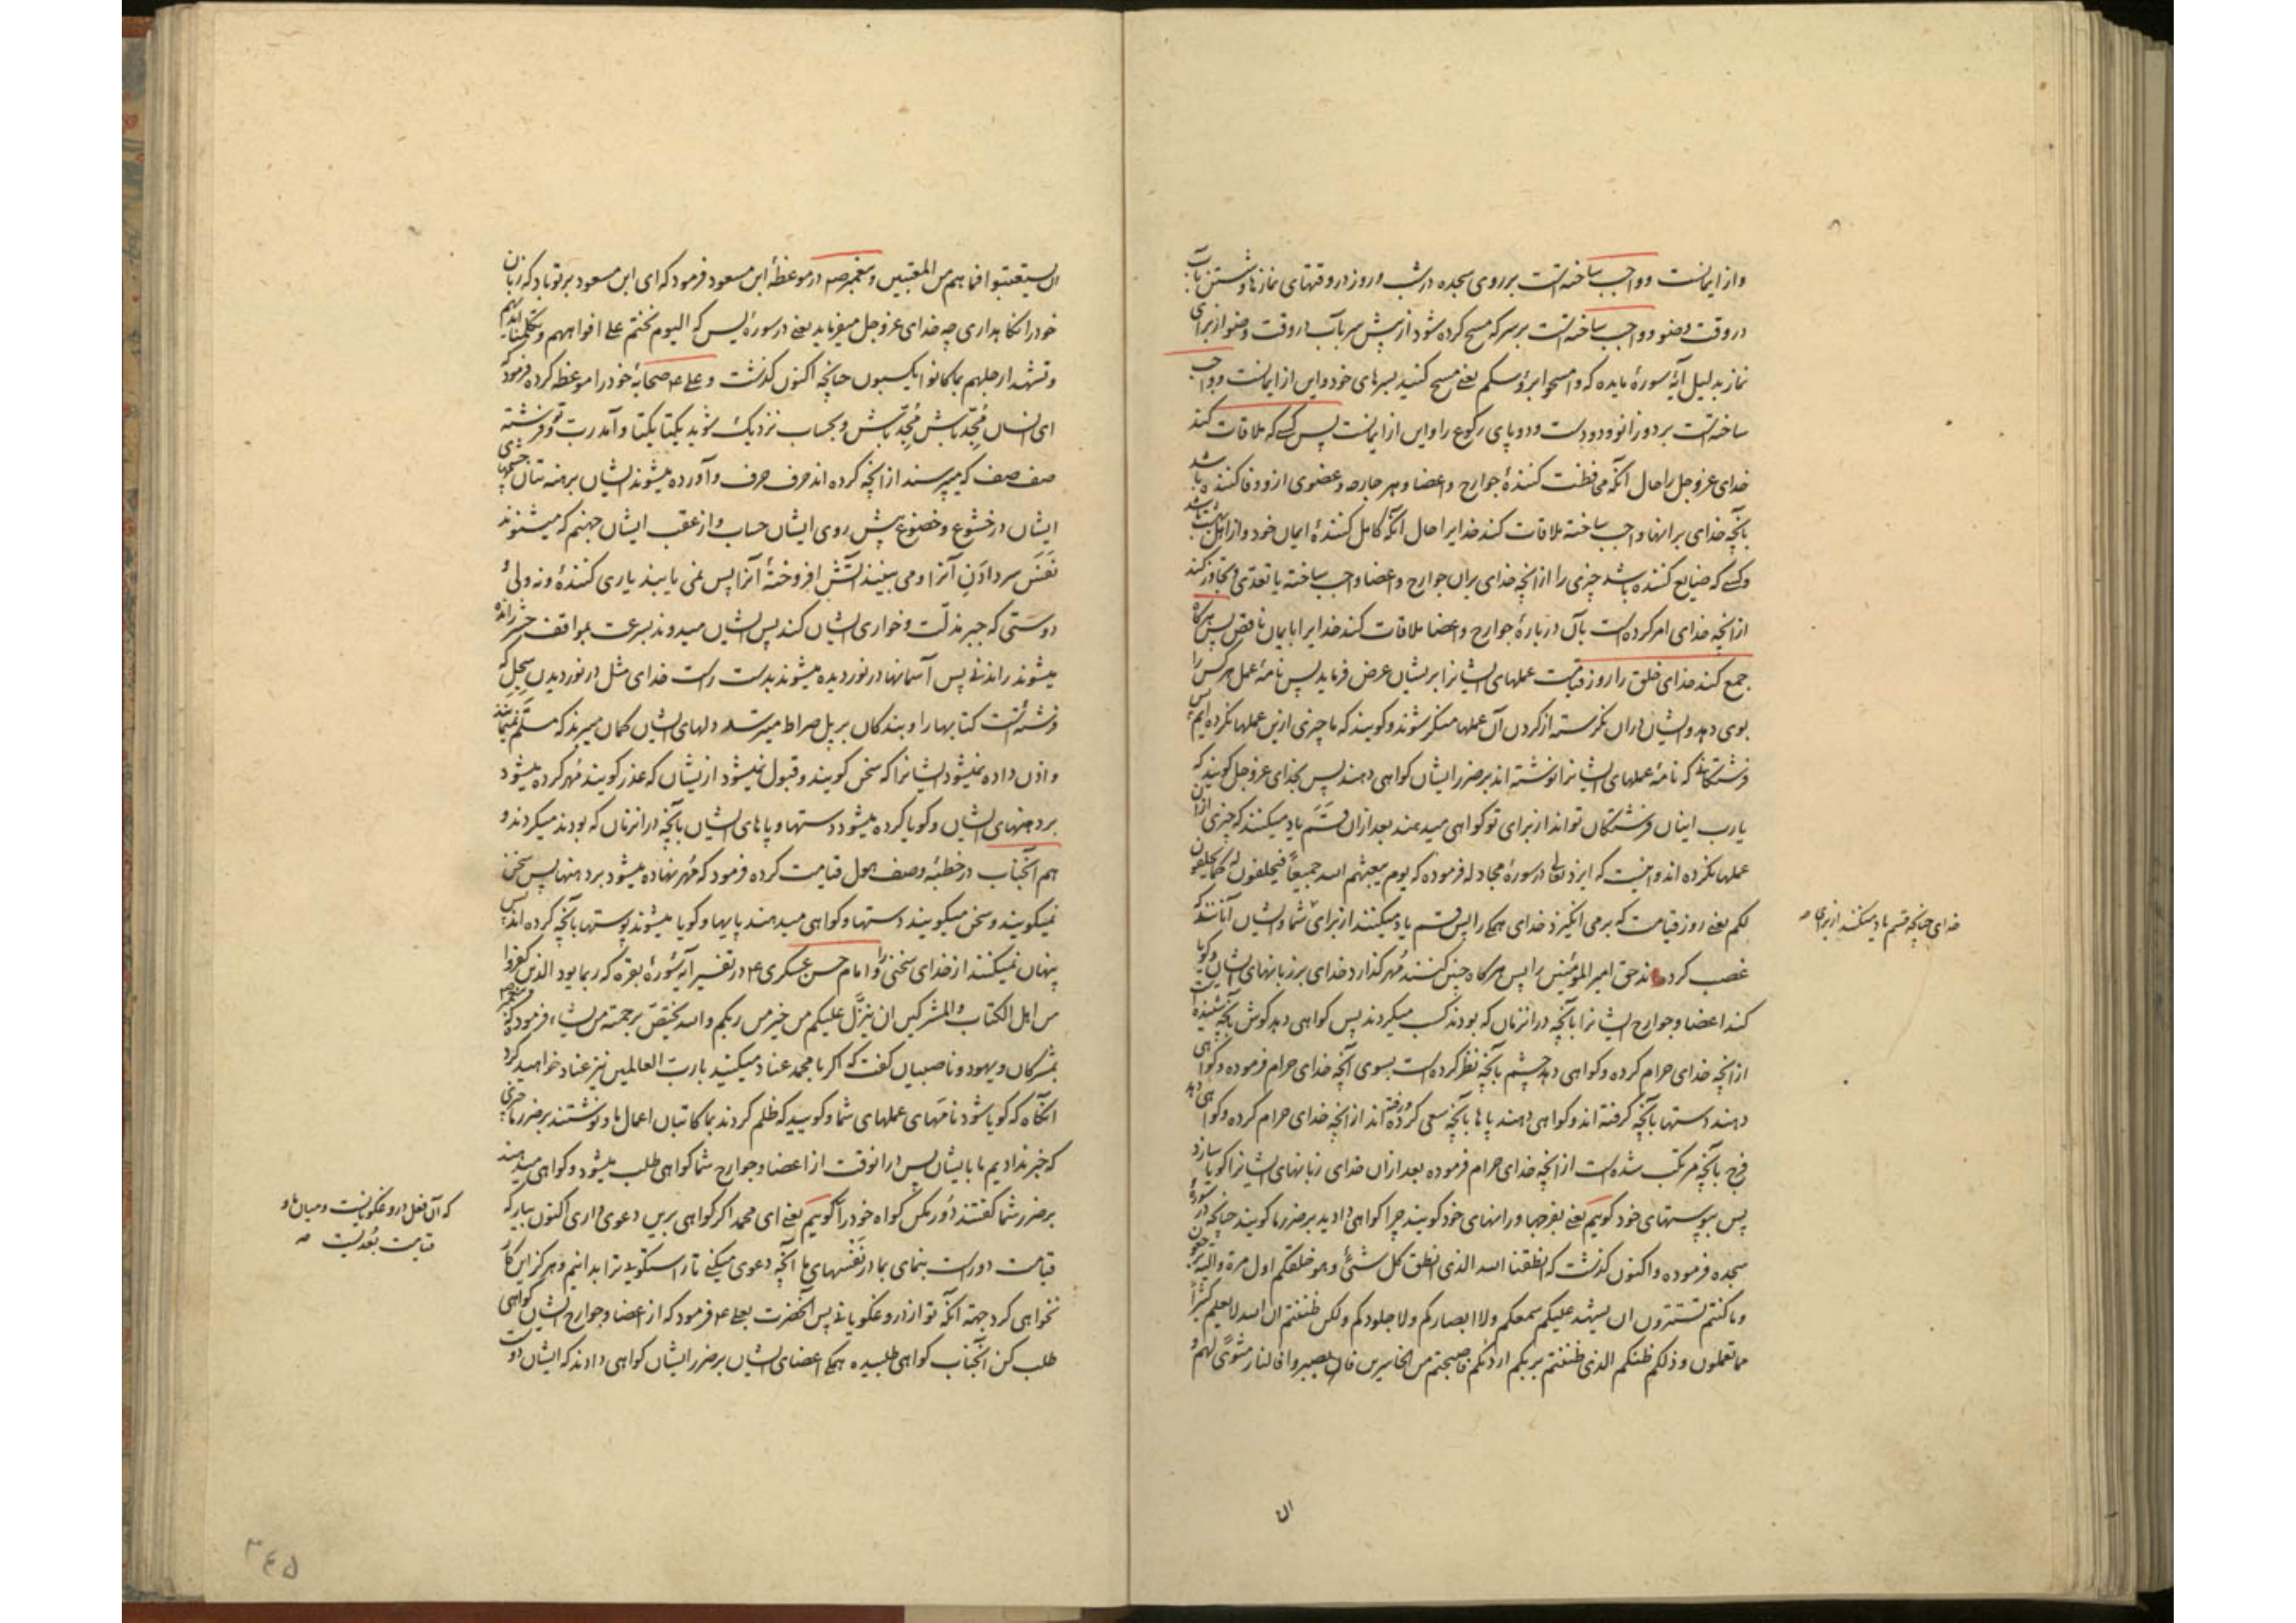 و از ایمانست و واجب ساخته است بر روی سجده در شب و روز در وقتهای نمازها و شستن بآب
در وقت وضو و واجب ساخته است بر سر که مسح کرده شود از پیش سر بآب در وقت وضو از برای
نماز بدلیل آیهٔ سورهٔ مایده که وامسحوا برؤسکم یعنے مسح کنید بسرهای خود و این از ایمانست و واجب
ساخته است بر دو زانو و دو دست و دو پای رکوع را و این از ایمانست پس کسے که ملاقات کند
خدای عزوجل را حال آنکه محافظت کنندهٔ جوارح و اعضا و هر جارحه و عضوی ازو وفا کننده باشد
بآنچه خدای بر آنها واجب ساخته ملاقات کند خدایرا حال آنکه کامل کنندهٔ ایمان خود و از اهل بهشت باشد
و کسے که ضایع کننده باشد چیزی را از آنچه خدای بران جوارح و اعضا واجب ساخته یا تعدّی و تجاوز کند
از آنچه خدای امر کرده است بآن در بارهٔ جوارح و اعضا ملاقات کند خدایرا با ایمان ناقص پس هرگاه
جمع کند خدای خلق را روز قیامت عملهای ایشانرا بریشان عرض فرماید پس نامهٔ عمل هر کس را
بوی دهد و ایشان دران نگرسته از کردن آن عملها منکر شوند و گویند که ما چیزی ازین عملها نکرده‌ایم پس
فرشتگانے که نامهٔ عملهای ایشانرا نوشته اند بر ضرر ایشان گواهی دهند پس بخدای عزوجل گویند که
یارب اینان فرشتگان تواند از برای تو گواهی میدهند بعد ازان قَسَم یاد میکنند که چیزی ازین
عملها نکرده اند و اینست که ایزد تعالی در سورهٔ مجادله فرموده که یوم یبعثهم الله جمیعًا فیحلفون له کما یحلفون
لکم یعنے روز قیامت که برمی انگیزد خدای همگی را پس قسم یاد میکنند از برای شما و ایشان آنانند که
خدای چنانچه قسم یاد میکنند از برای صه
غصب کرده اند حق امیر المؤمنین را پس هرگاه چنین کنند مُهر گذارد خدای بر زبانهای ایشان و گویا
کند اعضا و جوارح ایشانرا بآنچه در انزمان که بودند کسب میکردند پس گواهی دهد گوش بآنچه شنیده است
از آنچه خدای حرام کرده و گواهی دهد چشم بآنچه نظر کرده است بسوی آنچه خدای حرام فرموده و گواهی
دهند دستها بآنچه گرفته اند و گواهی دهند پاها بآنچه سعی کرده و رفته اند از آنچه خدای حرام کرده و گواهی دهد
فرج بآنچه مرتکب شده است از آنچه خدای حرام فرموده بعد ازان خدای زبانهای ایشانرا گویا سازد
پس بپوستهای خود گویم یعنے بفرجها و رانهای خود گویند چرا گواهی دادید بر ضرر ما گویند چنانچه در سورهٔ
سجده فرموده و اکنون گذشت که انطقنا الله الذی انطق کل شئٍ و هو خلقکم اول مرة و الیه ترجعون
و ما کنتم تستترون ان یشهد علیکم سمعکم و لا ابصارکم و لا جلودکم و لکن ظننتم ان الله لا یعلم کثیرًا
مما تعملون و ذلکم ظنکم الذی ظننتم بربکم اردٰکم فاصبحتم من الخاسرین فان یصبروا فالنار مثوًی لهم و
ان
ان یستعتبوا فما هم من المعتبین و پیغمبر صه در موعظهٔ ابن مسعود فرمود که ای ابن مسعود بر تو باد که زبان
خود را نگاهداری چه خدای عزوجل میفرماید یعنے در سورهٔ یس که الیوم نختم علے افواههم و تکلمنا ایدیهم
و تشهد ارجلهم بما کانوا یکسبون چنانچه اکنون گذشت و علے ع صحابهٔ خود را موعظه کرده فرمود که
ای انسان مُجِدّ باش مُجِدّ باش و بحساب نزدیک شوید یکتا یکتا و آمد رب تو و فرشته
صف صف که میپرسند از آنچه کرده اند حرف حرف و آورده میشوند ایشان برهنه تنان چشمهای
ایشان در خشوع و خضوع پیش روی ایشان حساب و از عقب ایشان جهنم که میشنوند
نَفَس سر دادن آنرا و می بینند آتش افروختهٔ آنرا پس نمی یابند یاری کنندهٔ و نه ولیٔ و
دوستی که جبر مذلّت و خواری ایشان کند پس ایشان میدوند بسرعت بمواقف حشر رانده
میشوند راندنے پس آسمانها در نوردیده میشوند بدست راست خدای مثل در نوردیدن سِجِلّ که
فرشته است کتابها را و بندگان بر پل صراط میترسند دلهای ایشان گمان میبرند که مسلَّم نمیمانند
و اذن داده نمیشود ایشانرا که سخن گویند و قبول نمیشود ازیشان که عذر گویند مُهر کرده میشود
بر دهنهای ایشان و گویا کرده میشود دستها و پاهای ایشان بآنچه در انزمان که بودند میکردند و
هم آنجناب در خطبهٔ وصف هول قیامت کرده فرمود که مُهر نهاده میشود بر دهنها پس سخن
نمیگویند و سخن میگویند دستها و گواهی میدهند پایها و گویا میشوند پوستها بآنچه کرده اند پس
پنهان نمیکنند از خدای سخنی را و امام حسن عسکری ع در تفسیر آیهٔ سورهٔ بقره که ربما یود الذین کفروا
من اهل الکتاب و المشرکین ان ینزّل علیکم من خیر من ربکم و الله یختصّ برحمته من یشاء فرمود که پیغمبر صه
بمشرکان و یهود و ناصبیان گفت که اگر با محمد عناد میکنید با رب العالمین نیز عناد خواهید کرد
آنگاه که گویا شود نامهای عملهای شما و گویید که ظلم کردند بما کاتبان اعمال ما و نوشتند بر ضرر ما چیزی
که خبر ندادیم ما بایشان پس درانوقت از اعضا و جوارح شما گواهی طلب میشود و گواهی میدهند
بر ضرر شما گفتند دُور مکن گواه خود را گویم یعنے ای محمد اگر گواهی برین دعوی داری اکنون بیار که
که آن فعل دروغگویانست و میان ما و
قیامت بُعدیست صه
قیامت دور است بنمای بما در نَفْسهای ما آنچه دعوی میکنے تا راستگویے ترا بدانیم و هرگز این کار
نخواهی کرد جهة آنکه تو از دروغگویانے پس آنحضرت بعلے ع فرمود که از اعضا و جوارح ایشان گواهی
طلب کن آنجناب گواهی طلبیده همگی اعضای ایشان بر ضرر ایشان گواهی دادند که ایشان دوست
۳۴۵